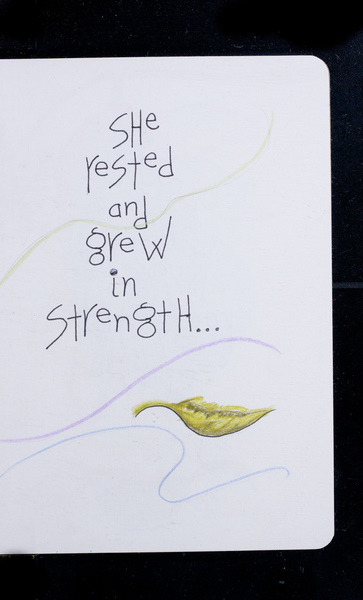 SHe
rested
and
grew
in
StrengtH...